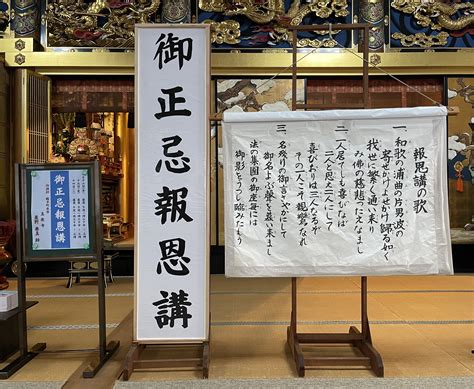 報恩講の歌
一、和歌の浦曲の片男波の
寄せかけよせかけ帰る如く
我世に繁く通い来り
み佛の慈悲つたえなまし
二、一人居てしも喜びなば
二人と思え二人にして
喜びおりは三人なるぞ
の一人こそ親鸞なれ
三、名残りの御言さやかにして
御名よぶ声を慕い来まし
法の集團の御座毎には
御影をうつし臨みたもう
御正忌報恩講
御正忌報恩講